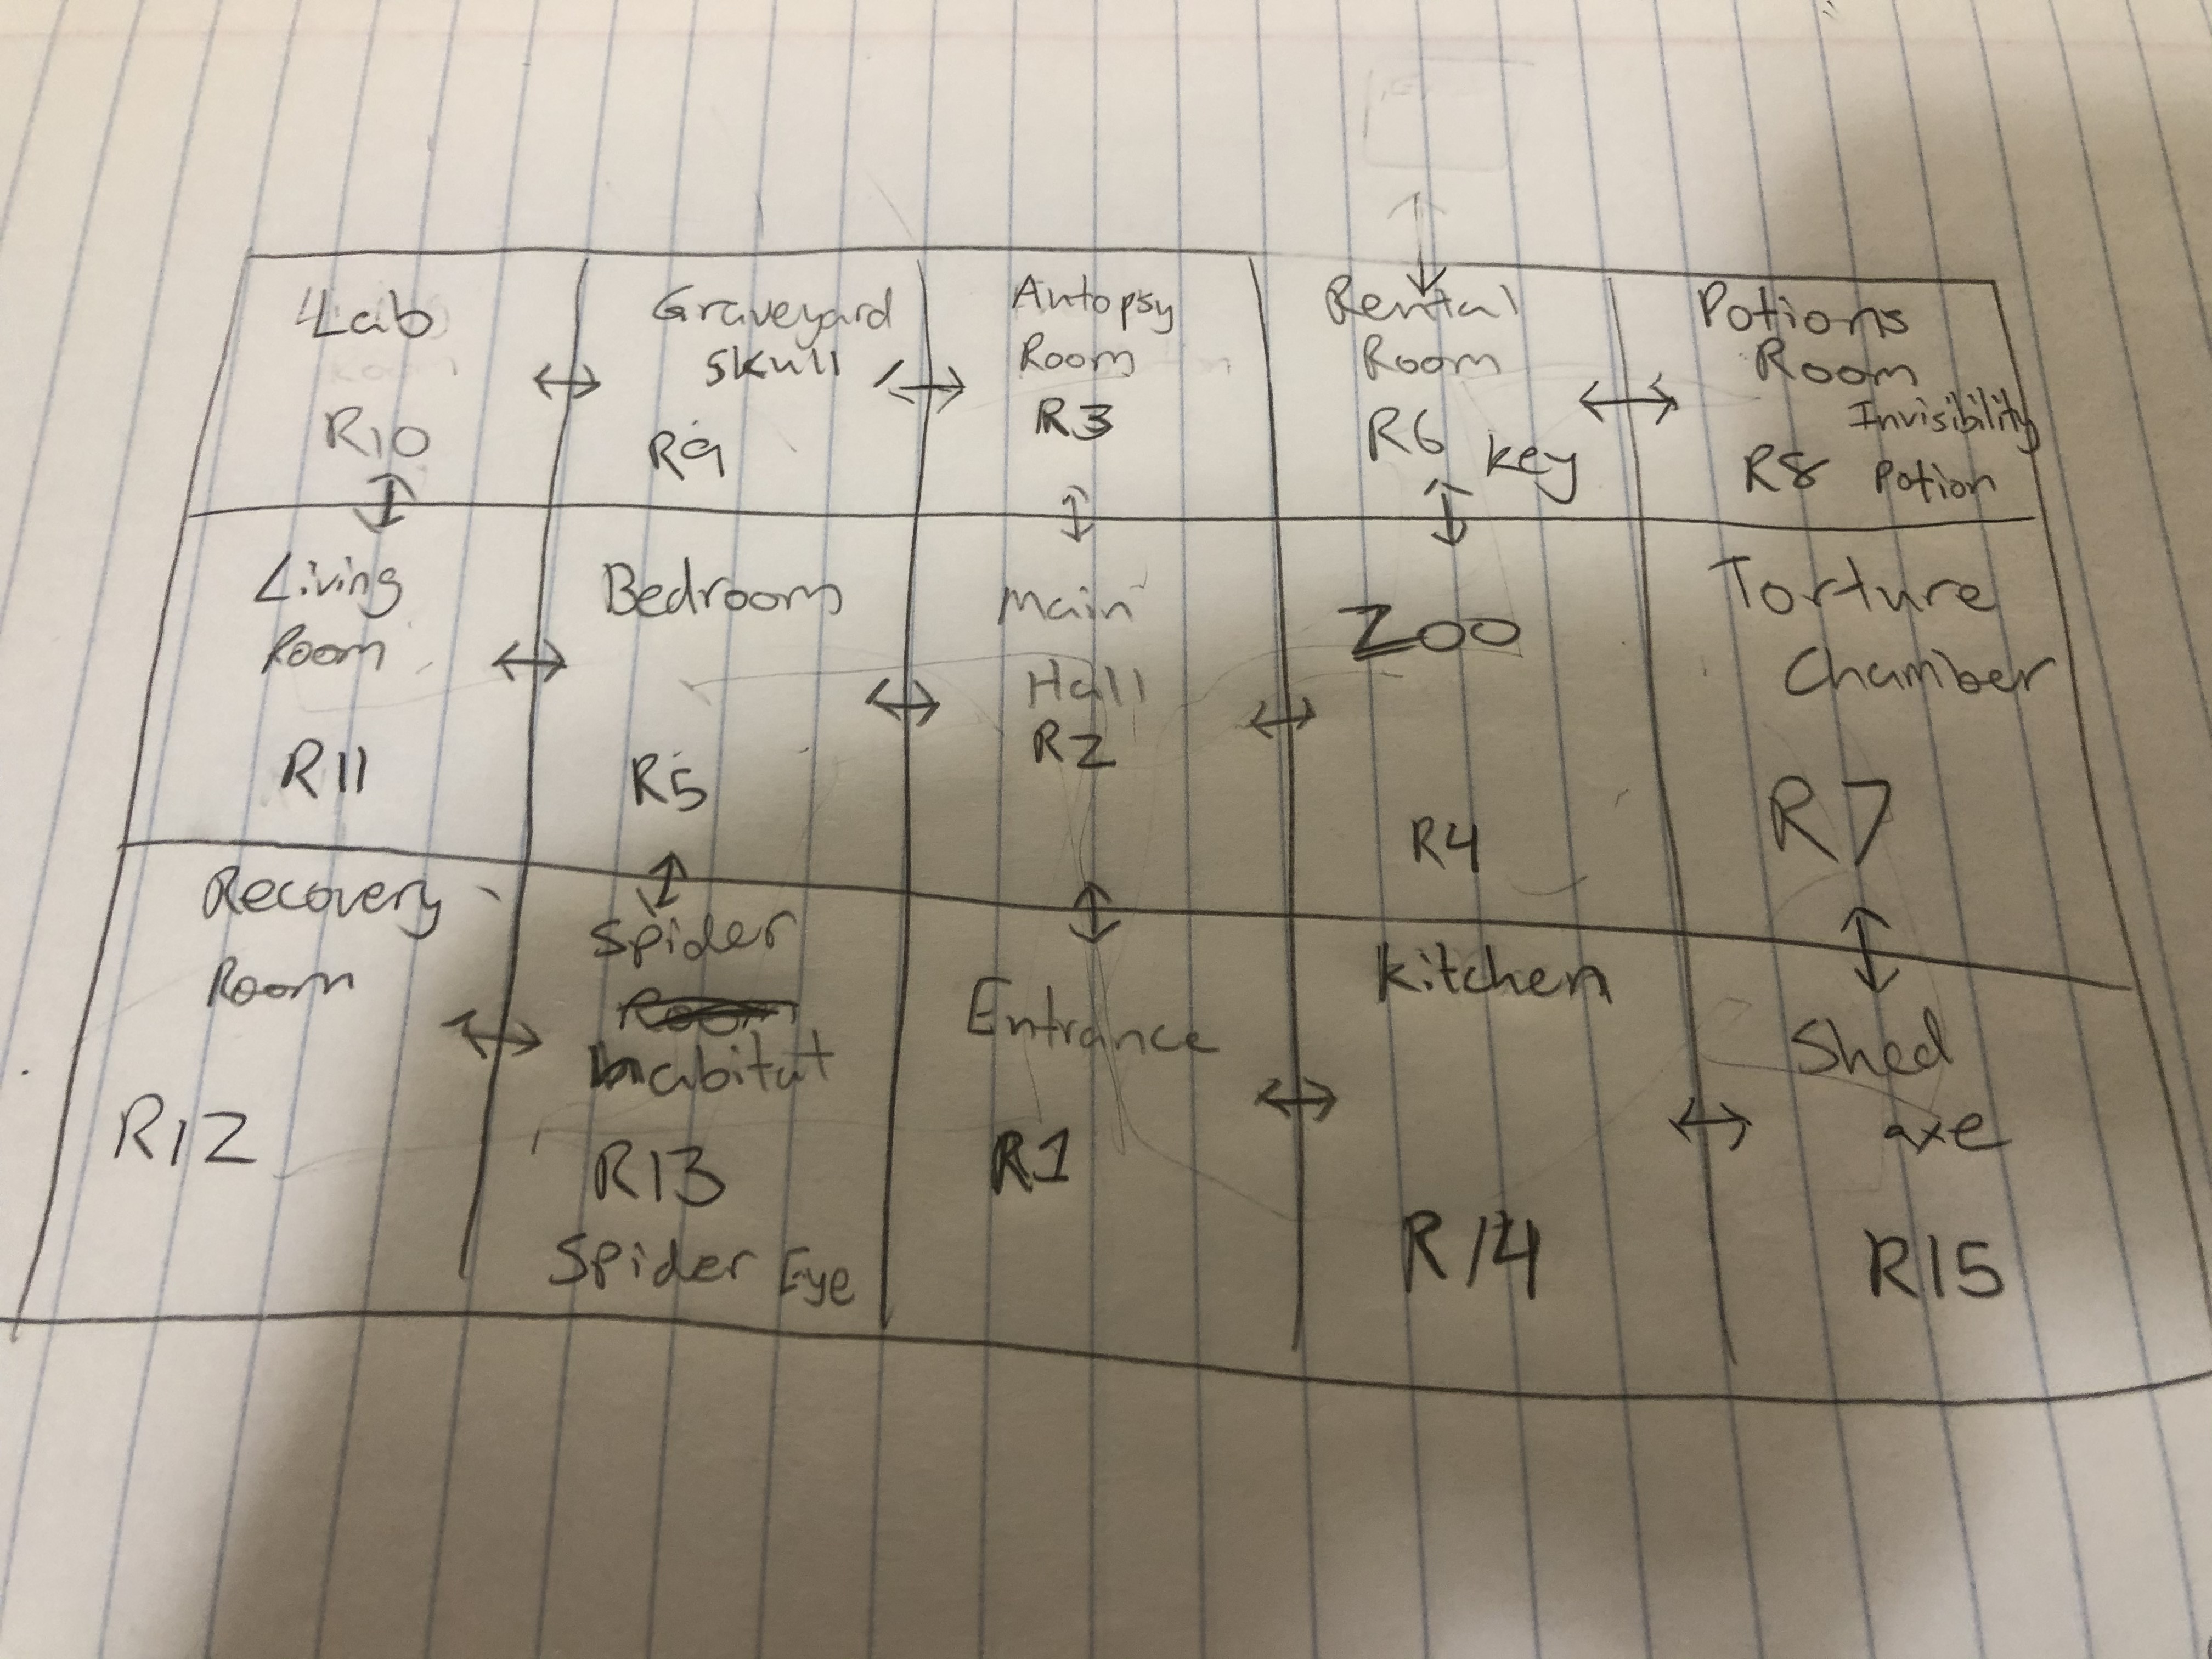 Lab
R10
Graveyard
Skull
R9
Autopsy
Room
R3
Rental
Room
R6 key
Potions
Room
R8 Invisibility
Potion
Living
Room
R11
Bedroom
R5
Main
Hall
R2
Zoo
R4
Torture
Chamber
R7
Recovery
Room
R12
Spider
R13
Spider Eye
Entrance
R1
Kitchen
R14
Shed
axe
R15